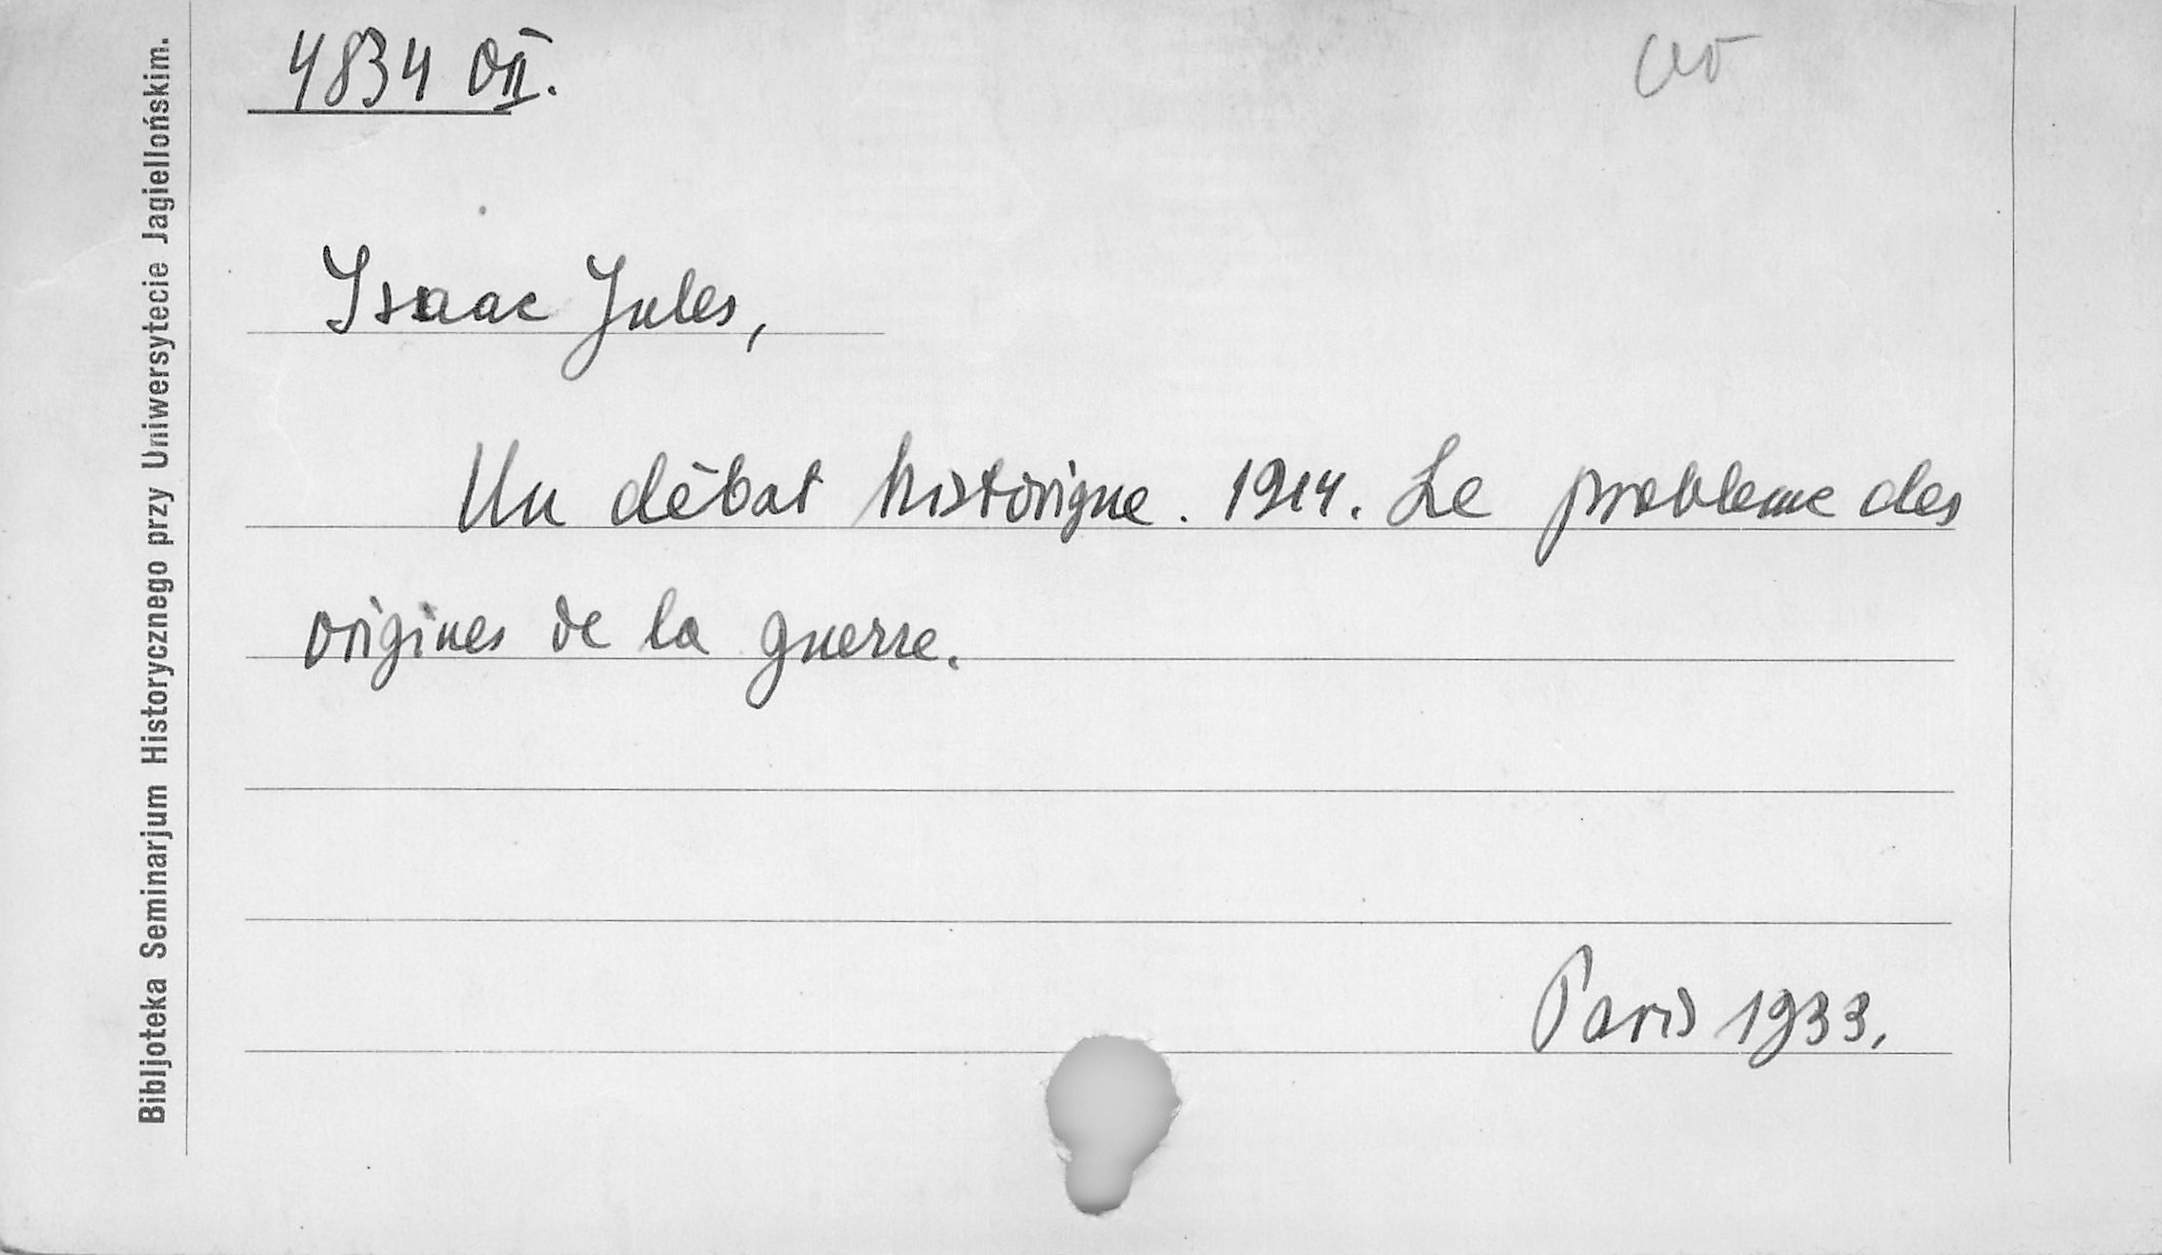 4834 OII.
Isaac Jules,
Un débat historique. 1914. Le probleme des
origines de la guerre.
Paris 1933.
Bibljoteka Seminarjum Historycznego przy Uniwersytecie Jagiellońskim.